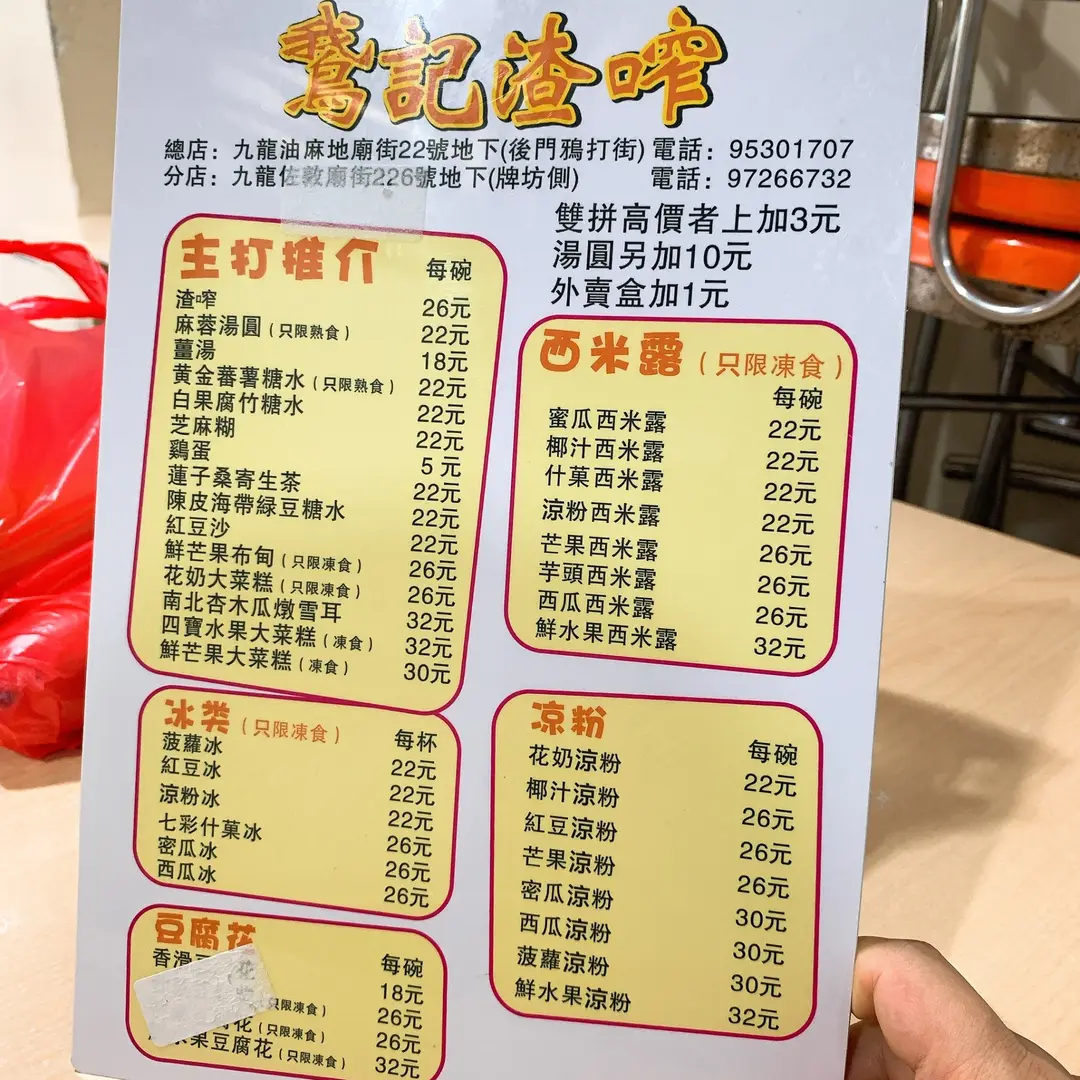 鵞記渣咋
總店：九龍油麻地廟街22號地下(後門鴉打街) 電話：95301707
分店：九龍佐敦廟街226號地下(牌坊側) 電話：97266732
雙拼高價者上加3元
湯圓另加10元
外賣盒加1元
主打推介 每碗
渣咋 26元
麻蓉湯圓(只限熟食) 22元
薑湯 18元
黃金蕃薯糖水(只限熟食) 22元
白果腐竹糖水 22元
芝麻糊 22元
鷄蛋 5元
蓮子桑寄生茶 22元
陳皮海帶緑豆糖水 22元
紅豆沙 22元
鮮芒果布甸(只限凍食) 26元
花奶大菜糕(只限凍食) 26元
南北杏木瓜燉雪耳 32元
四寶水果大菜糕(凍食) 32元
鮮芒果大菜糕(凍食) 30元
西米露(只限凍食)
每碗
蜜瓜西米露 22元
椰汁西米露 22元
什菓西米露 22元
涼粉西米露 22元
芒果西米露 26元
芋頭西米露 26元
西瓜西米露 26元
鮮水果西米露 32元
冰类(只限凍食) 每杯
菠蘿冰 22元
紅豆冰 22元
涼粉冰 22元
七彩什菓冰 26元
密瓜冰 26元
西瓜冰 26元
凉粉 每碗
花奶涼粉 22元
椰汁涼粉 26元
紅豆涼粉 26元
芒果涼粉 26元
密瓜涼粉 30元
西瓜涼粉 30元
菠蘿涼粉 30元
鮮水果涼粉 32元
豆腐花 每碗
香滑 18元
只限凍食) 26元
花(只限凍食) 26元
果豆腐花(只限凍食) 32元